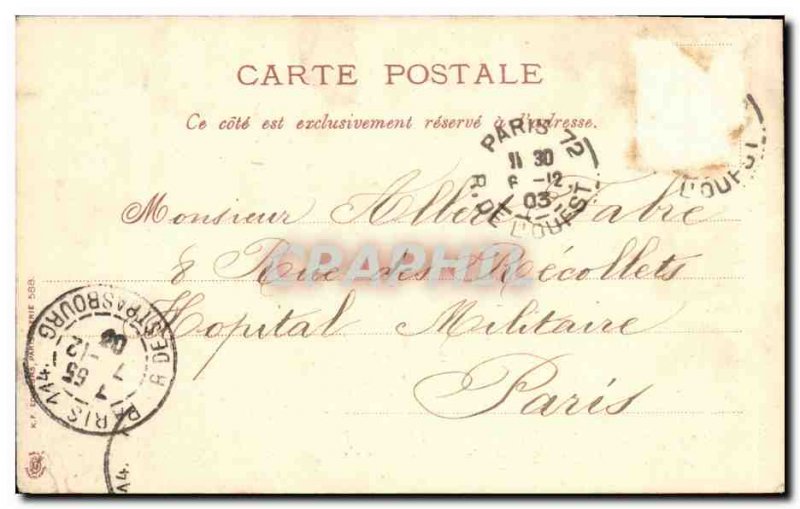 CARTE POSTALE
Ce côté est exclusivement réservé à l'adresse.
PARIS 72
11 30
6 -12
03
R. DE L'OUEST
L'OUEST
Monsieur Albert Fabre
8 Rue des Récollets
Hopital Militaire
Paris
CPAPHIL
PARIS 114.
R DE STRASBOURG
7 55
7 -12
03
14.
PARIS SERIE 588